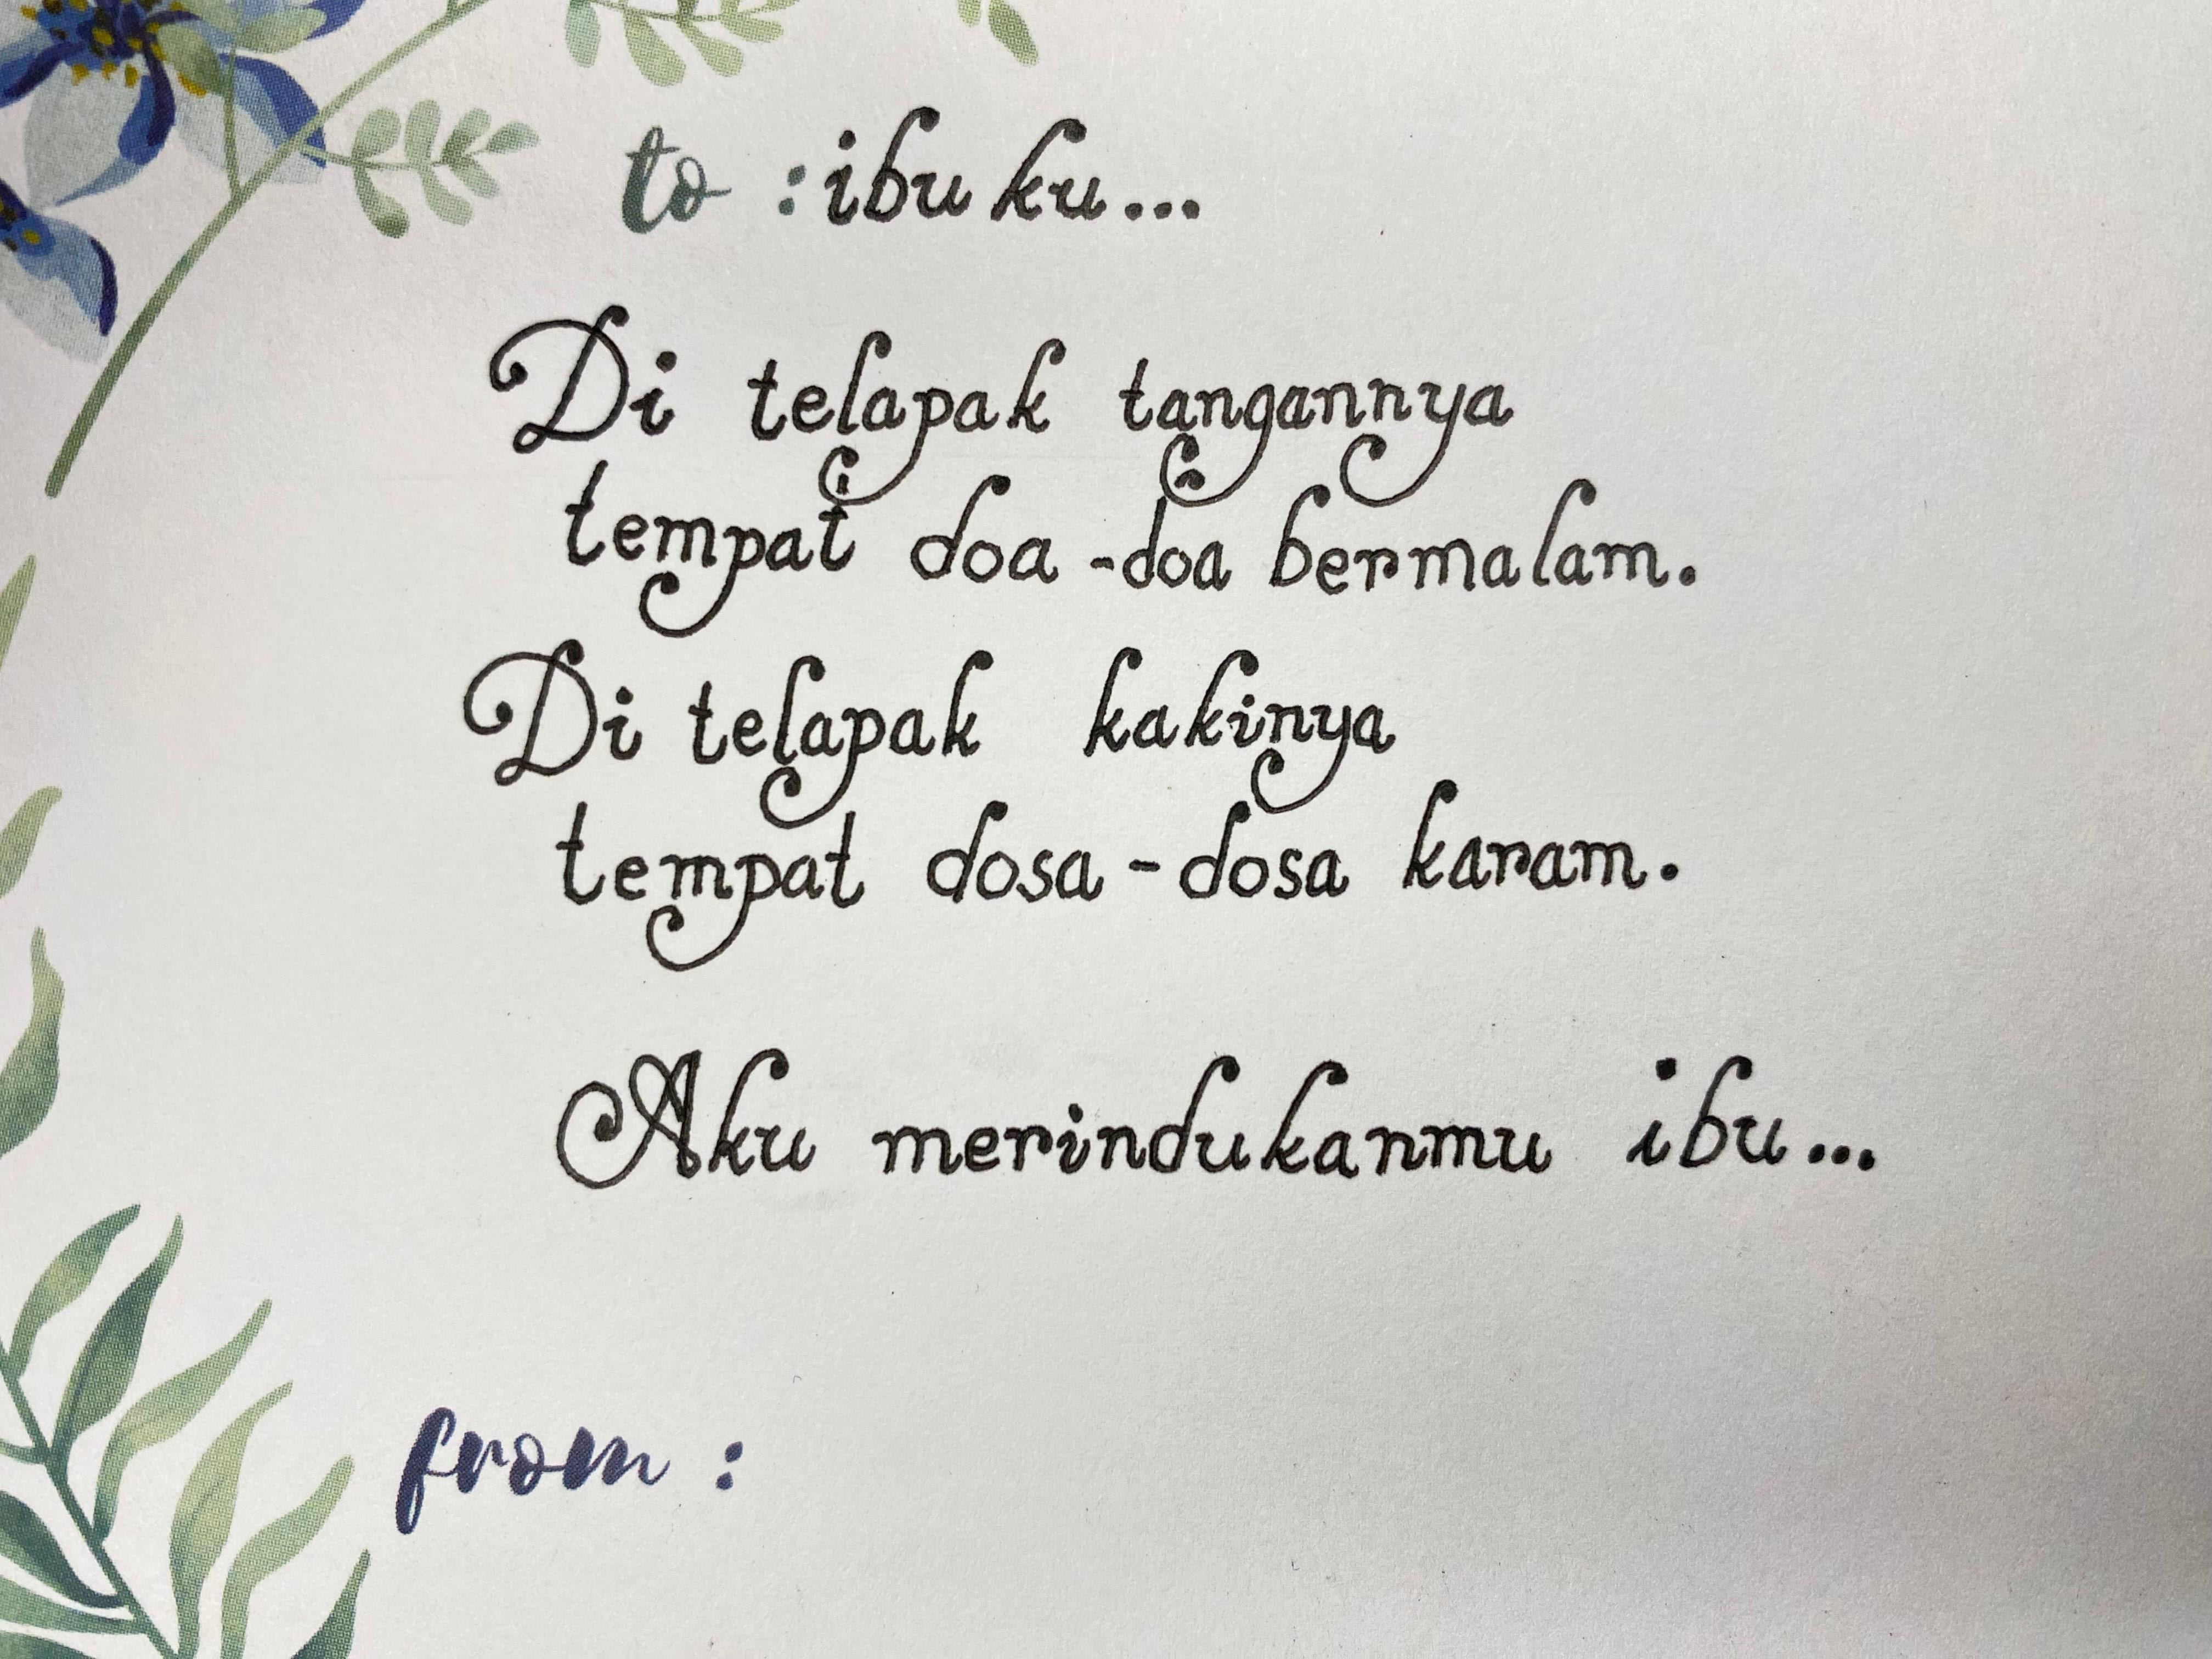 to : ibuku...
Di telapak tangannya
tempat doa-doa bermalam.
Di telapak kakinya
tempat dosa-dosa karam.
Aku merindukanmu ibu...
from :